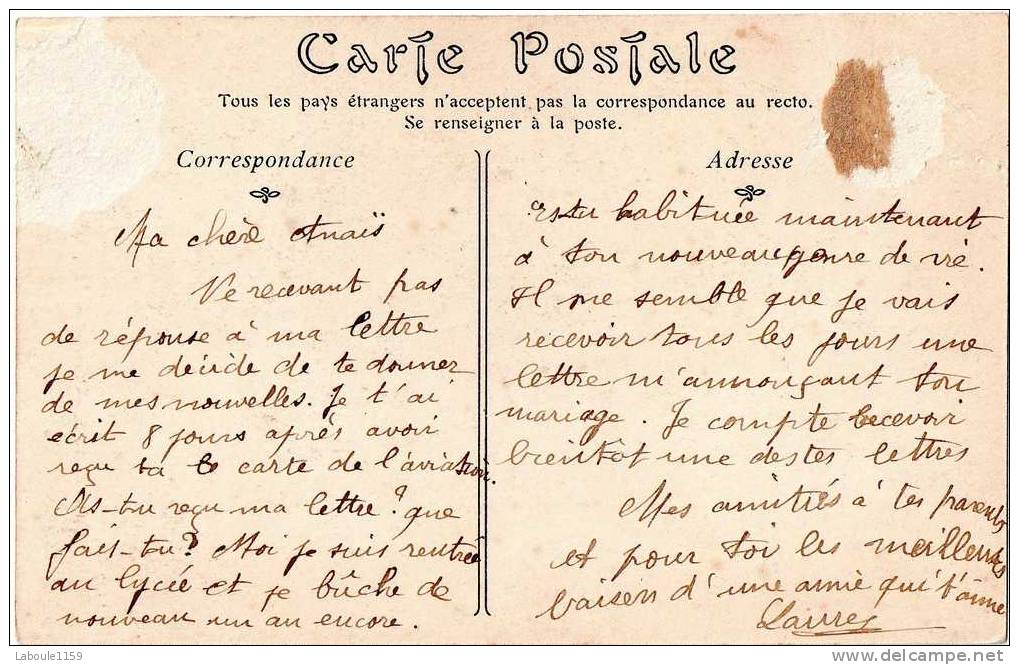 Carte Postale
Tous les pays étrangers n'acceptent pas la correspondance au recto.
Se renseigner à la poste.
Correspondance
Ma chère Anaïs
Ne recevant pas
de réponse à ma lettre
je me décide de te donner
de mes nouvelles. Je t'ai
écrit 8 jours après avoir
reçu ta carte de l'aviation.
As-tu reçu ma lettre? que
fais-tu? Moi je suis rentrée
au lycée et je bûche de
nouveau un an encore.
Adresse
Es tu habituée maintenant
à ton nouveau genre de vie.
Il me semble que je vais
recevoir tous les jours une
lettre m'annonçant ton
mariage. Je compte recevoir
bientôt une de tes lettres
Mes amitiés à tes parents
et pour toi les meilleurs
baisers d'une amie qui t'aime
Laboule1159
delcampe.net